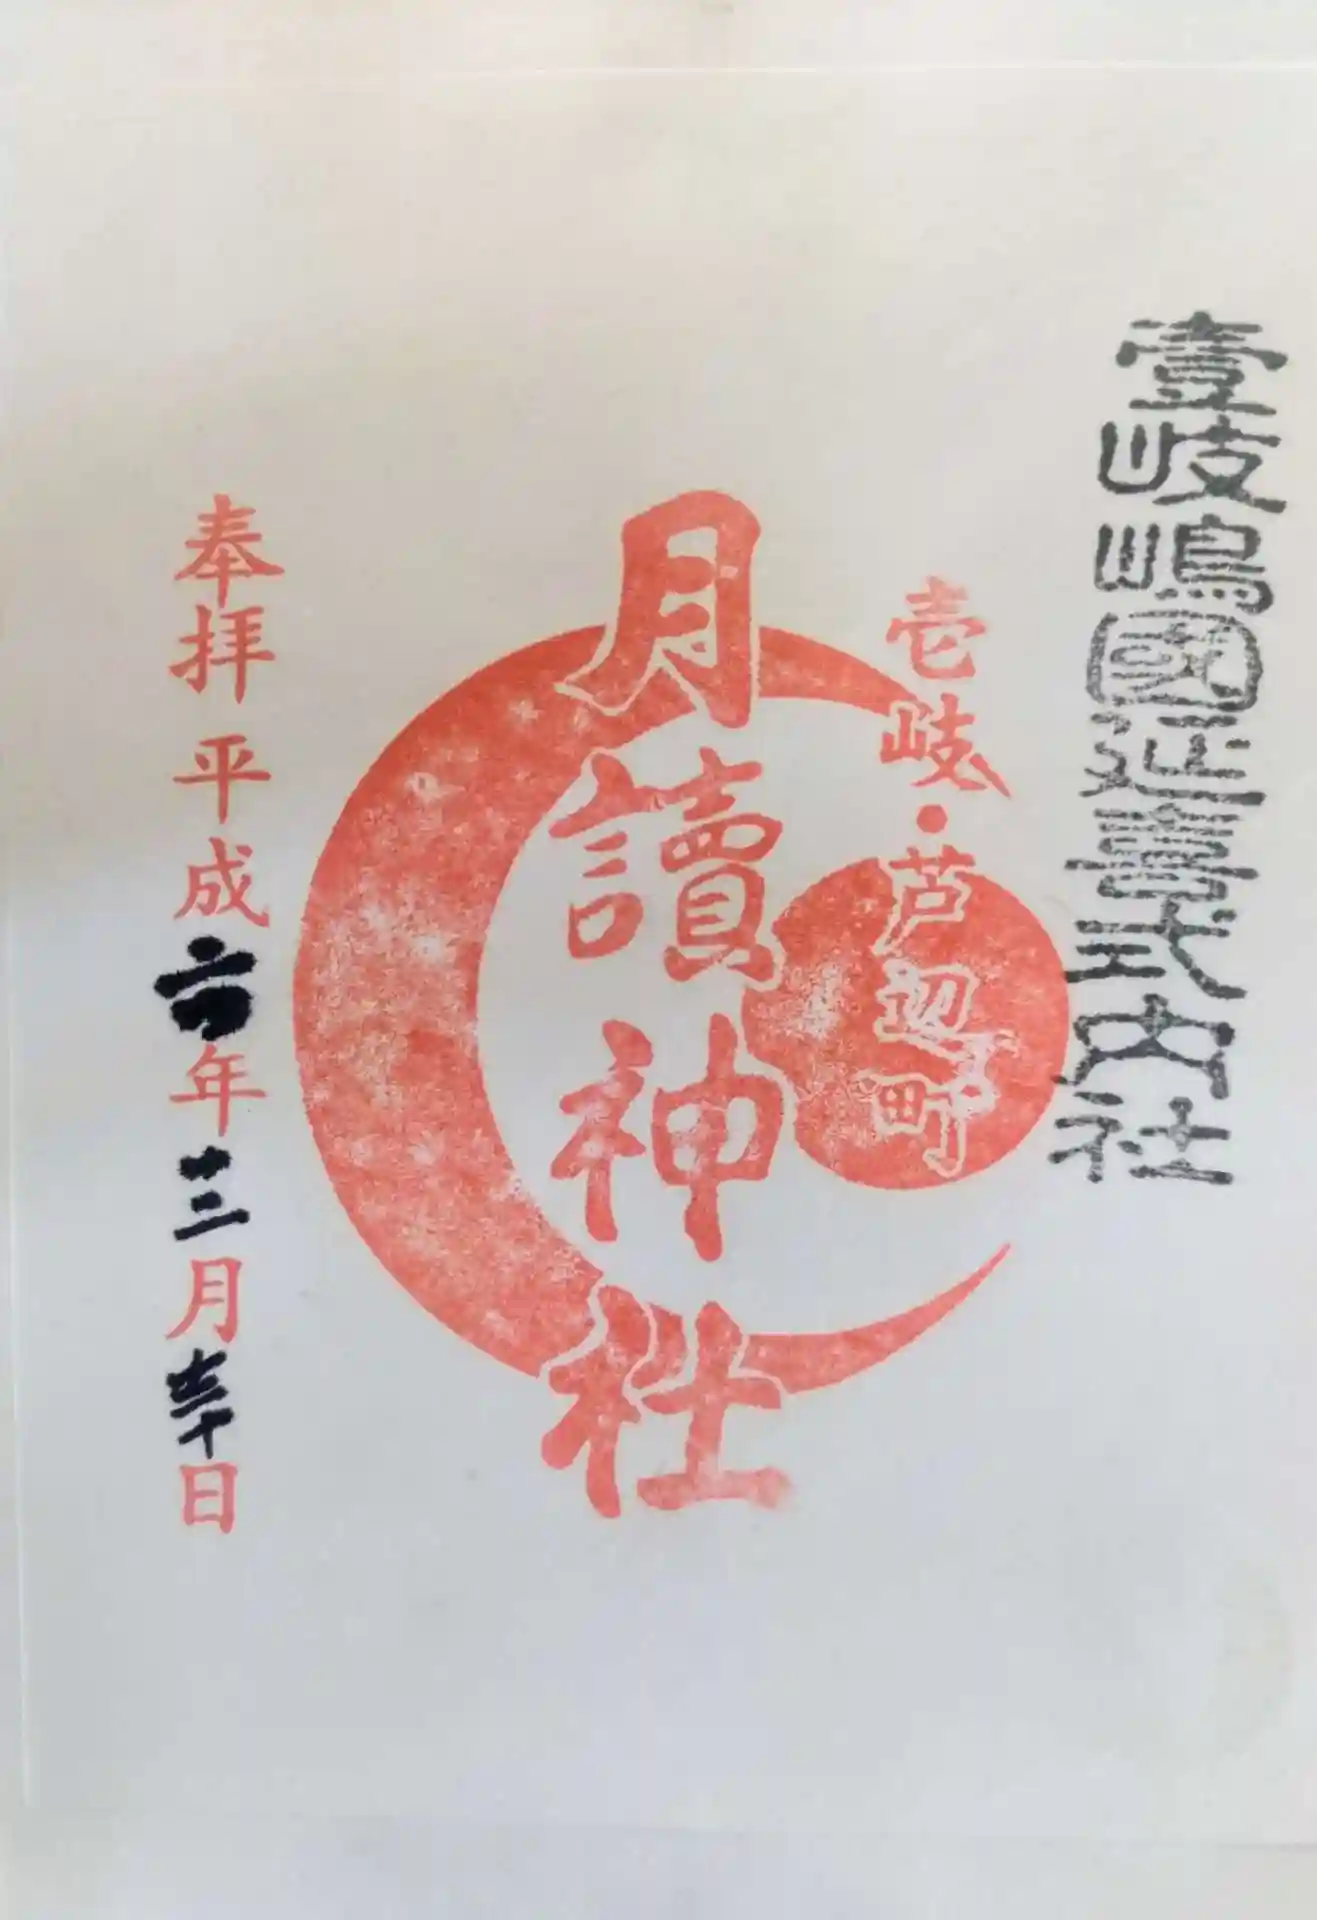 壹岐嶋國延喜式内社
壱岐・芦辺町
月讀神社
奉拝 平成 年 月 日